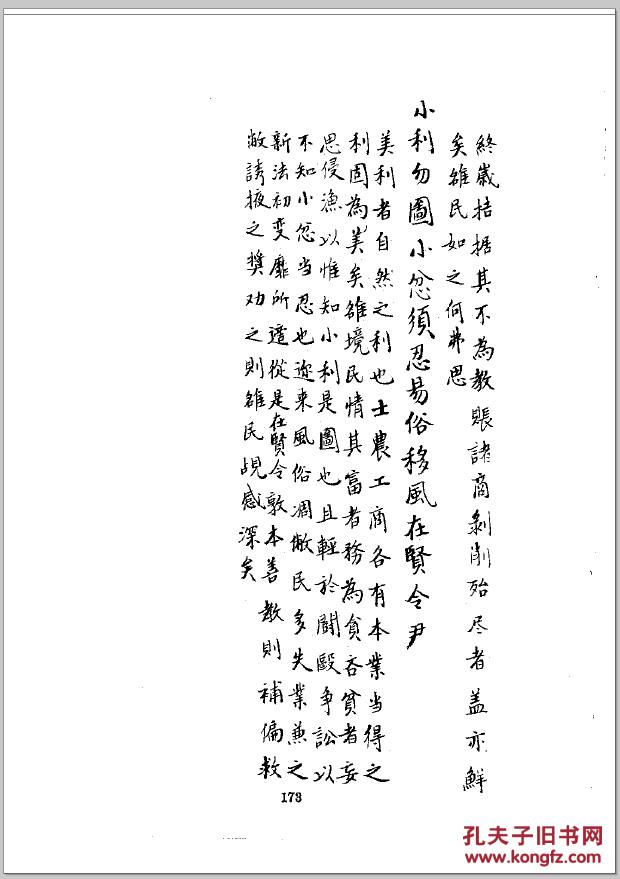 終歲拮据其不為教賬諸商剝削殆尽者盖亦鮮
矣雒民如之何弗思
小利勿圖小忿須忍易俗移風在賢令尹
美利者自然之利也士農工商各有本業当得之
利固為美矣雒境民情其富者務為貪吝貧者妄
思侵漁以惟知小利是圖也且輕於鬪毆争訟以
不知小忿当忍也近来風俗凋敝民多失業兼之
新法初变靡所遵從是在賢令敦本善教則補偏救
敝誘掖之獎劝之則雒民覘感深矣
173
孔夫子旧书网
www.kongfz.com